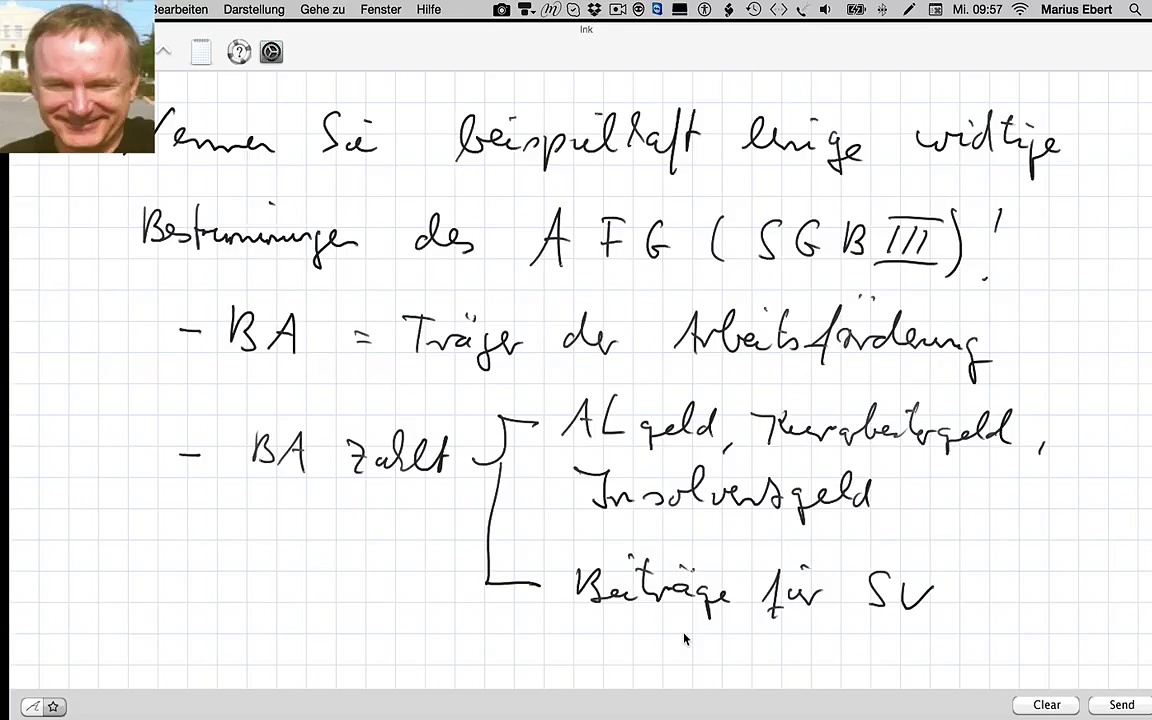 Bearbeiten Darstellung Gehe zu Fenster Hilfe Mi. 09:57 Marius Ebert
Ink
Nennen Sie beispielhaft einige wichtige
Bestimmungen des AFG (SGB III)!
- BA = Träger der Arbeitsförderung
- BA zahlt ALgeld, Kurzarbeitergeld,
Insolvenzgeld
Beiträge für SV
Clear Send